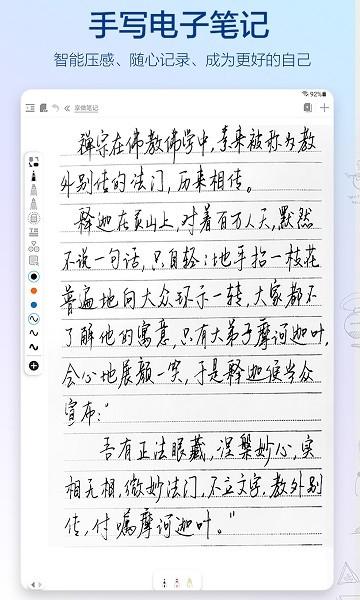 手写电子笔记
智能压感、随心记录、成为更好的自己
92%
享做笔记
禅宗在佛教佛学中,素来被称为教
外别传的法门,历来相传。
释迦在灵山上,对着百万人天,默然
不说一句话,只自轻轻地手拈一枝花
普遍地向大众环示一转,大家都不
了解他的寓意,只有大弟子摩诃迦叶,
会心地展颜一笑,于是释迦便当众
宣布:"
吾有正法眼藏,涅槃妙心,实
相无相,微妙法门,不立文字,教外别
传,付嘱摩诃迦叶。"